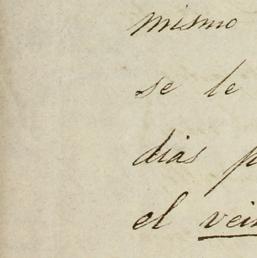 mismo
se le
dias p
el vei